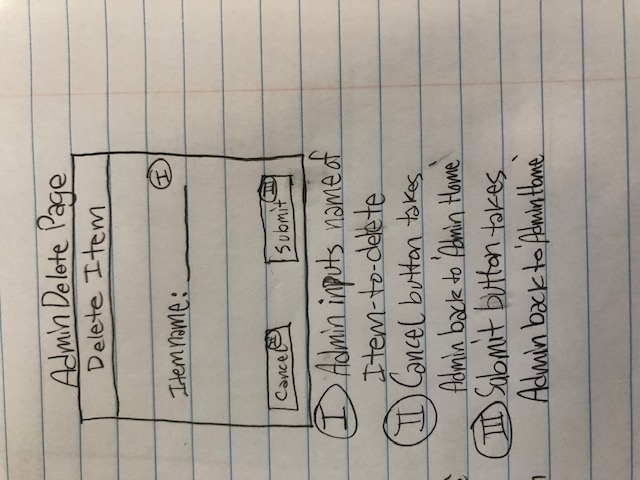 Admin Delete Page
Delete Item
I
Item name:
Cancel II
Submit III
I Admin inputs name of
Item-to-delete
II Cancel button takes
Admin back to 'Admin Home'
III Submit button takes
Admin back to 'Admin Home'